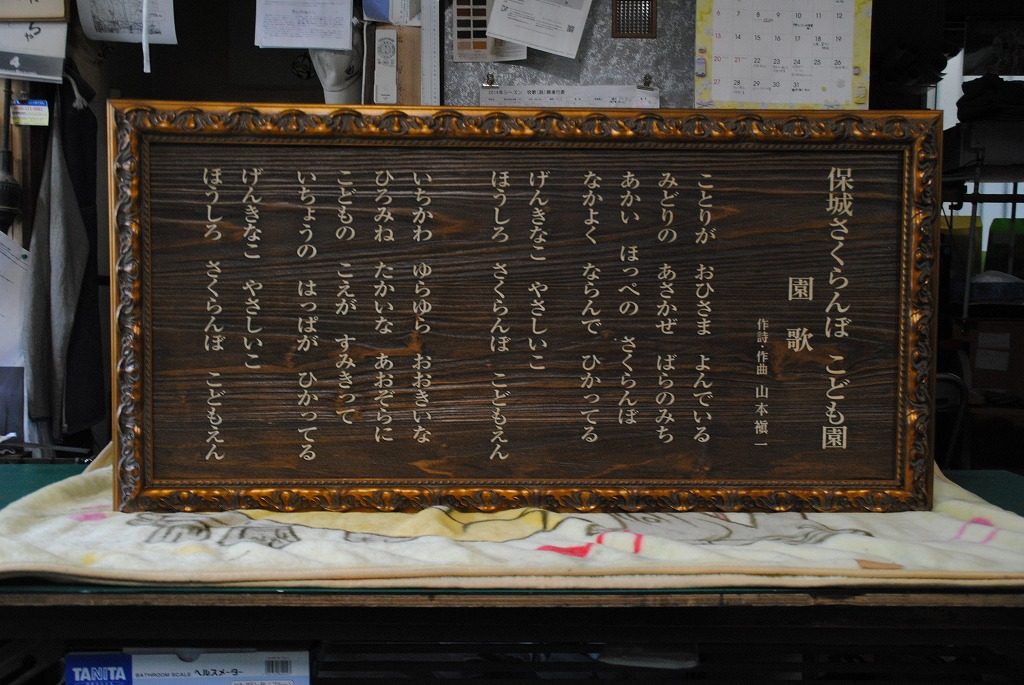 保城さくらんぼ こども園
園歌
作詩・作曲 山本槇一
ことりが おひさま よんでいる
みどりの あさかぜ ばらのみち
あかい ほっぺの さくらんぼ
なかよく ならんで ひかってる
げんきなこ やさしいこ
ほうしろ さくらんぼ こどもえん
いちかわ ゆらゆら おおきいな
ひろみね たかいな あおぞらに
こどもの こえが すみきって
いちょうの はっぱが ひかってる
げんきなこ やさしいこ
ほうしろ さくらんぼ こどもえん
6 7 8 9 10 11 12
13 14 15 16 17 18 19
20 21 22 23 24 25 26
27 28 29 30 31
TANITA
BATHROOM SCALE ヘルスメーター